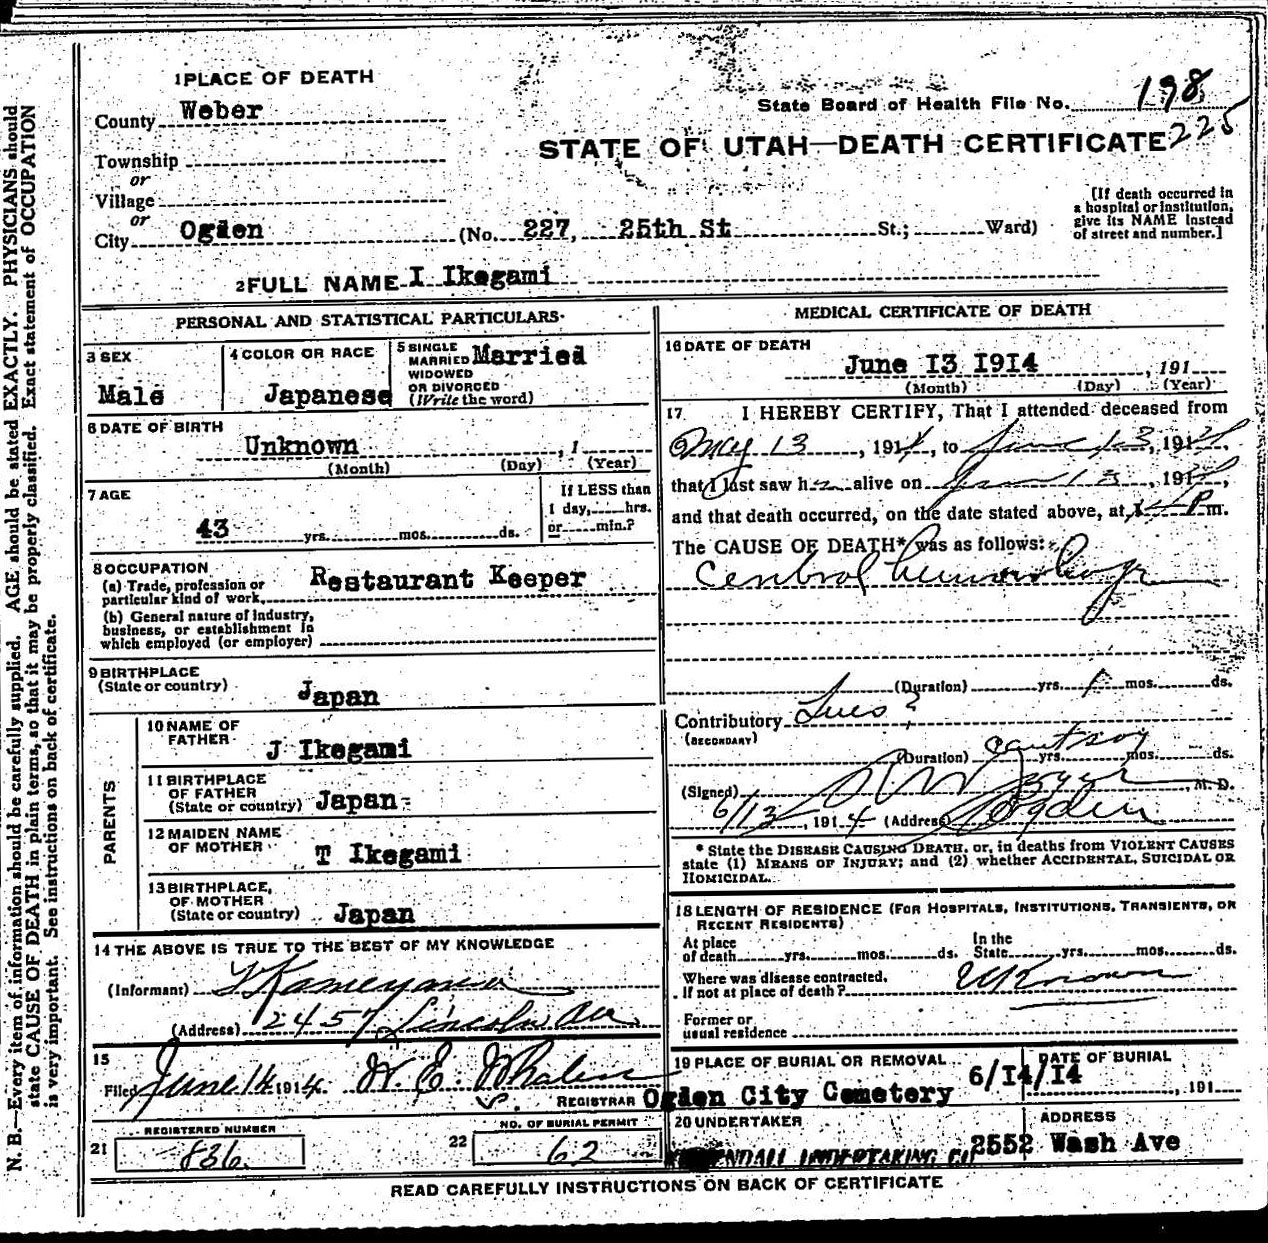 1 PLACE OF DEATH
County Weber
Township
or
Village
or
City Ogden (No. 227, 25th St St.; Ward)
State Board of Health File No. 198
225
STATE OF UTAH—DEATH CERTIFICATE
[If death occurred in
a hospital or institution,
give its NAME instead
of street and number.]
2 FULL NAME I Ikegami
PERSONAL AND STATISTICAL PARTICULARS
3 SEX
Male
4 COLOR OR RACE
Japanese
5 SINGLE
MARRIED
WIDOWED
OR DIVORCED
(Write the word)
Married
6 DATE OF BIRTH
Unknown , 1
(Month) (Day) (Year)
7 AGE
43 yrs. mos. ds.
If LESS than
1 day, hrs.
or min.?
8 OCCUPATION
(a) Trade, profession or
particular kind of work Restaurant Keeper
(b) General nature of industry,
business, or establishment in
which employed (or employer)
9 BIRTHPLACE
(State or country) Japan
PARENTS
10 NAME OF
FATHER J Ikegami
11 BIRTHPLACE
OF FATHER
(State or country) Japan
12 MAIDEN NAME
OF MOTHER T Ikegami
13 BIRTHPLACE
OF MOTHER
(State or country) Japan
14 THE ABOVE IS TRUE TO THE BEST OF MY KNOWLEDGE
(Informant) Kameyama
(Address) 2457 Lincoln Ave
15
Filed June 14 1914 W. E. Whalen
REGISTRAR
21 REGISTERED NUMBER
836
22 NO. OF BURIAL PERMIT
62
MEDICAL CERTIFICATE OF DEATH
16 DATE OF DEATH
June 13 1914 , 191
(Month) (Day) (Year)
17 I HEREBY CERTIFY, That I attended deceased from
May 13, 1914, to June 13, 1914,
that I last saw h alive on June 13, 1914,
and that death occurred, on the date stated above, at P m.
The CAUSE OF DEATH* was as follows:
Cerebral hemorrhage
(Duration) yrs. 1 mos. ds.
Contributory Lues ?
(SECONDARY)
(Duration) can't say yrs. mos. ds.
(Signed) , M. D.
6/13, 1914 (Address) Ogden
* State the DISEASE CAUSING DEATH, or, in deaths from VIOLENT CAUSES
state (1) MEANS OF INJURY; and (2) whether ACCIDENTAL, SUICIDAL OR
HOMICIDAL.
18 LENGTH OF RESIDENCE (FOR HOSPITALS, INSTITUTIONS, TRANSIENTS, OR
RECENT RESIDENTS)
At place In the
of death yrs. mos. ds. State yrs. mos. ds.
Where was disease contracted,
If not at place of death? Unknown
Former or
usual residence
19 PLACE OF BURIAL OR REMOVAL
Ogden City Cemetery
DATE OF BURIAL
6/14/14 , 191
20 UNDERTAKER
UNDERTAKING CO
ADDRESS
2552 Wash Ave
READ CAREFULLY INSTRUCTIONS ON BACK OF CERTIFICATE
N. B.—Every item of information should be carefully supplied. AGE should be stated EXACTLY. PHYSICIANS should
state CAUSE OF DEATH in plain terms, so that it may be properly classified. Exact statement of OCCUPATION
is very important. See instructions on back of certificate.